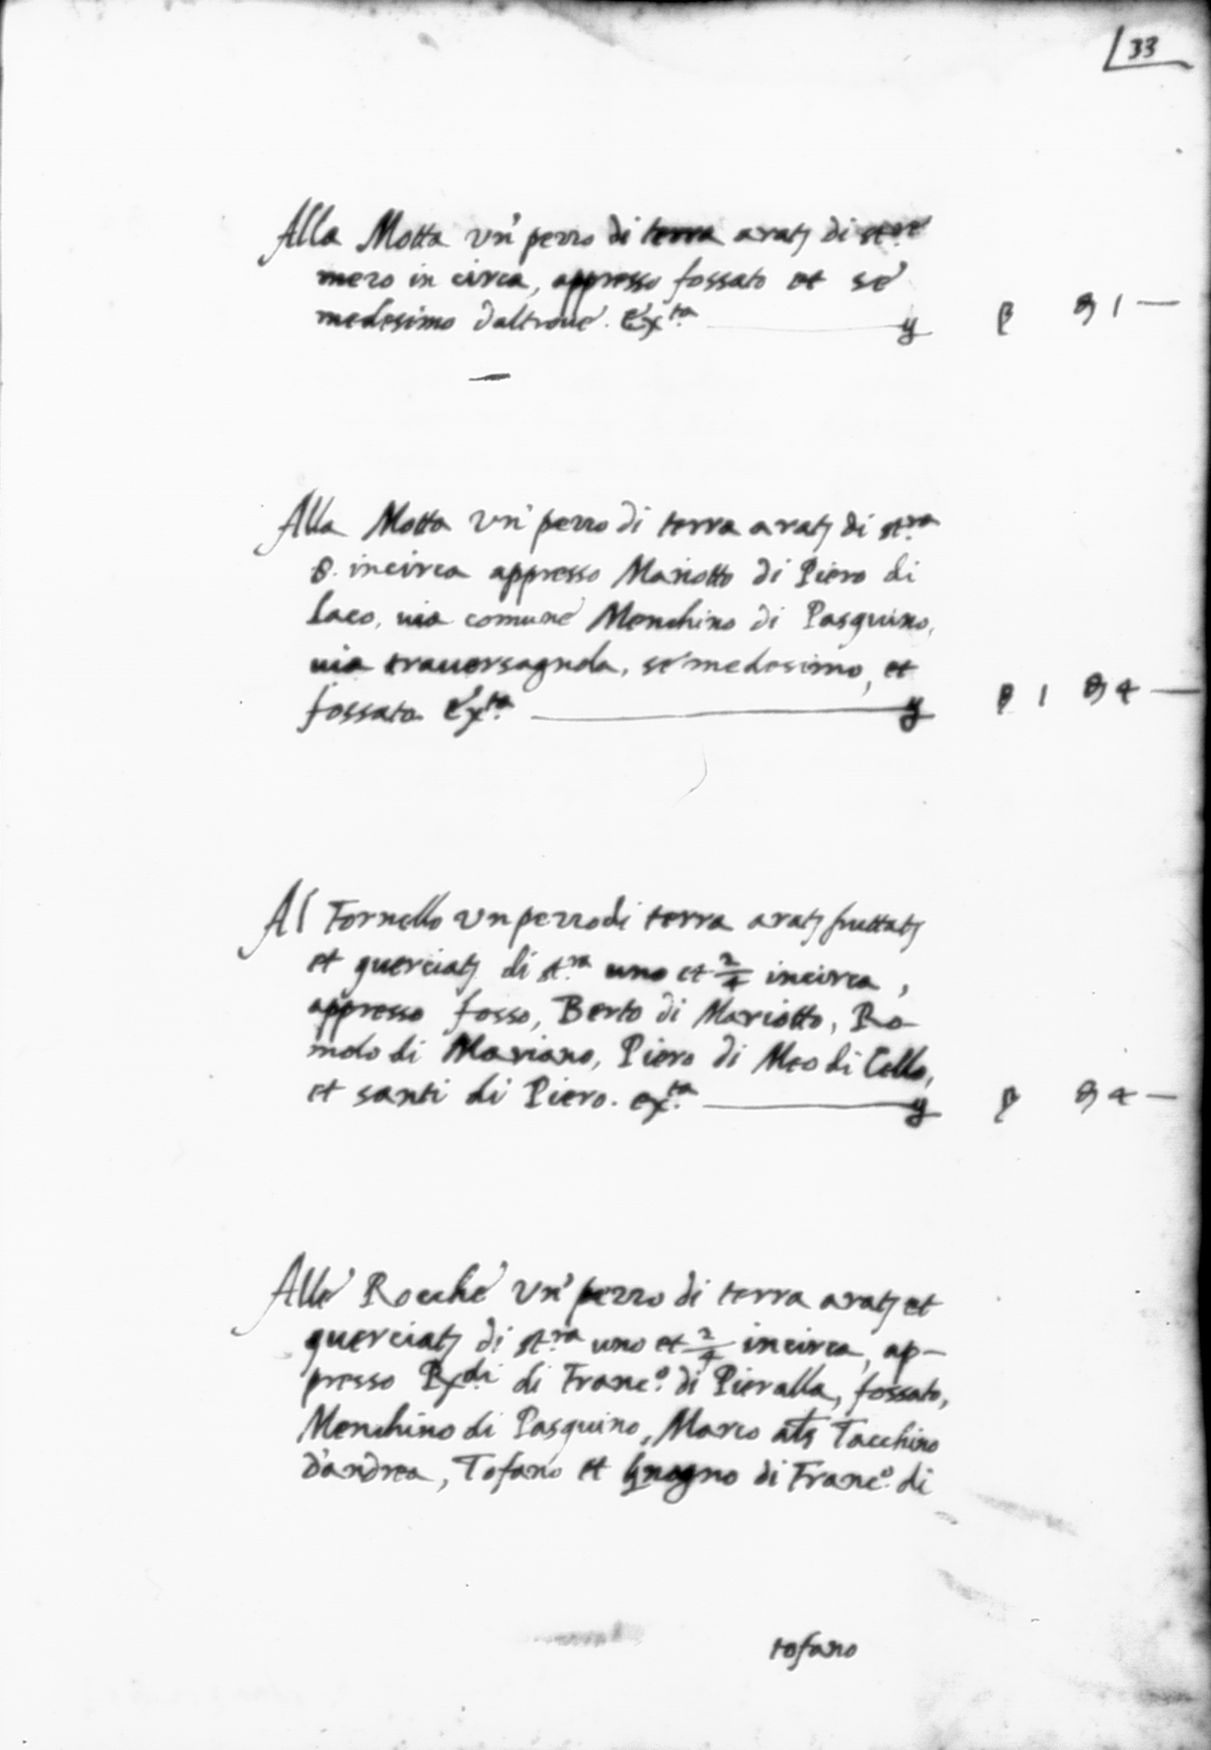 33
Alla Motta un' pezzo di terra arat. di
mezo in circa, appresso fossato et se
medesimo d'altroue. Ex.ta
1
Alla Motta un' pezzo di terra arat. di st.ra
8. incirca appresso Mariotto di Piero di
Laco, uia comune Menchino di Pasquino,
uia trauersagnola, se medesimo, et
fossato Ex.ta
1 4
Al Fornello un pezzo di terra arat. fruttat.
et querciat. di st.ra uno et 2/4 incirca,
appresso fosso, Berto di Mariotto, Ro-
molo di Mariano, Piero di Meo di Cello,
et santi di Piero. ex.ta
4
Alle Rocche un' pezzo di terra arat. et
querciat. di st.ra uno et 2/4 incirca, ap-
presso Rx.di di Franc.o di Pieralla, fossato,
Menchino di Pasquino, Marco als Tacchino
d'andrea, Tofano et di Franc.o di
tofano